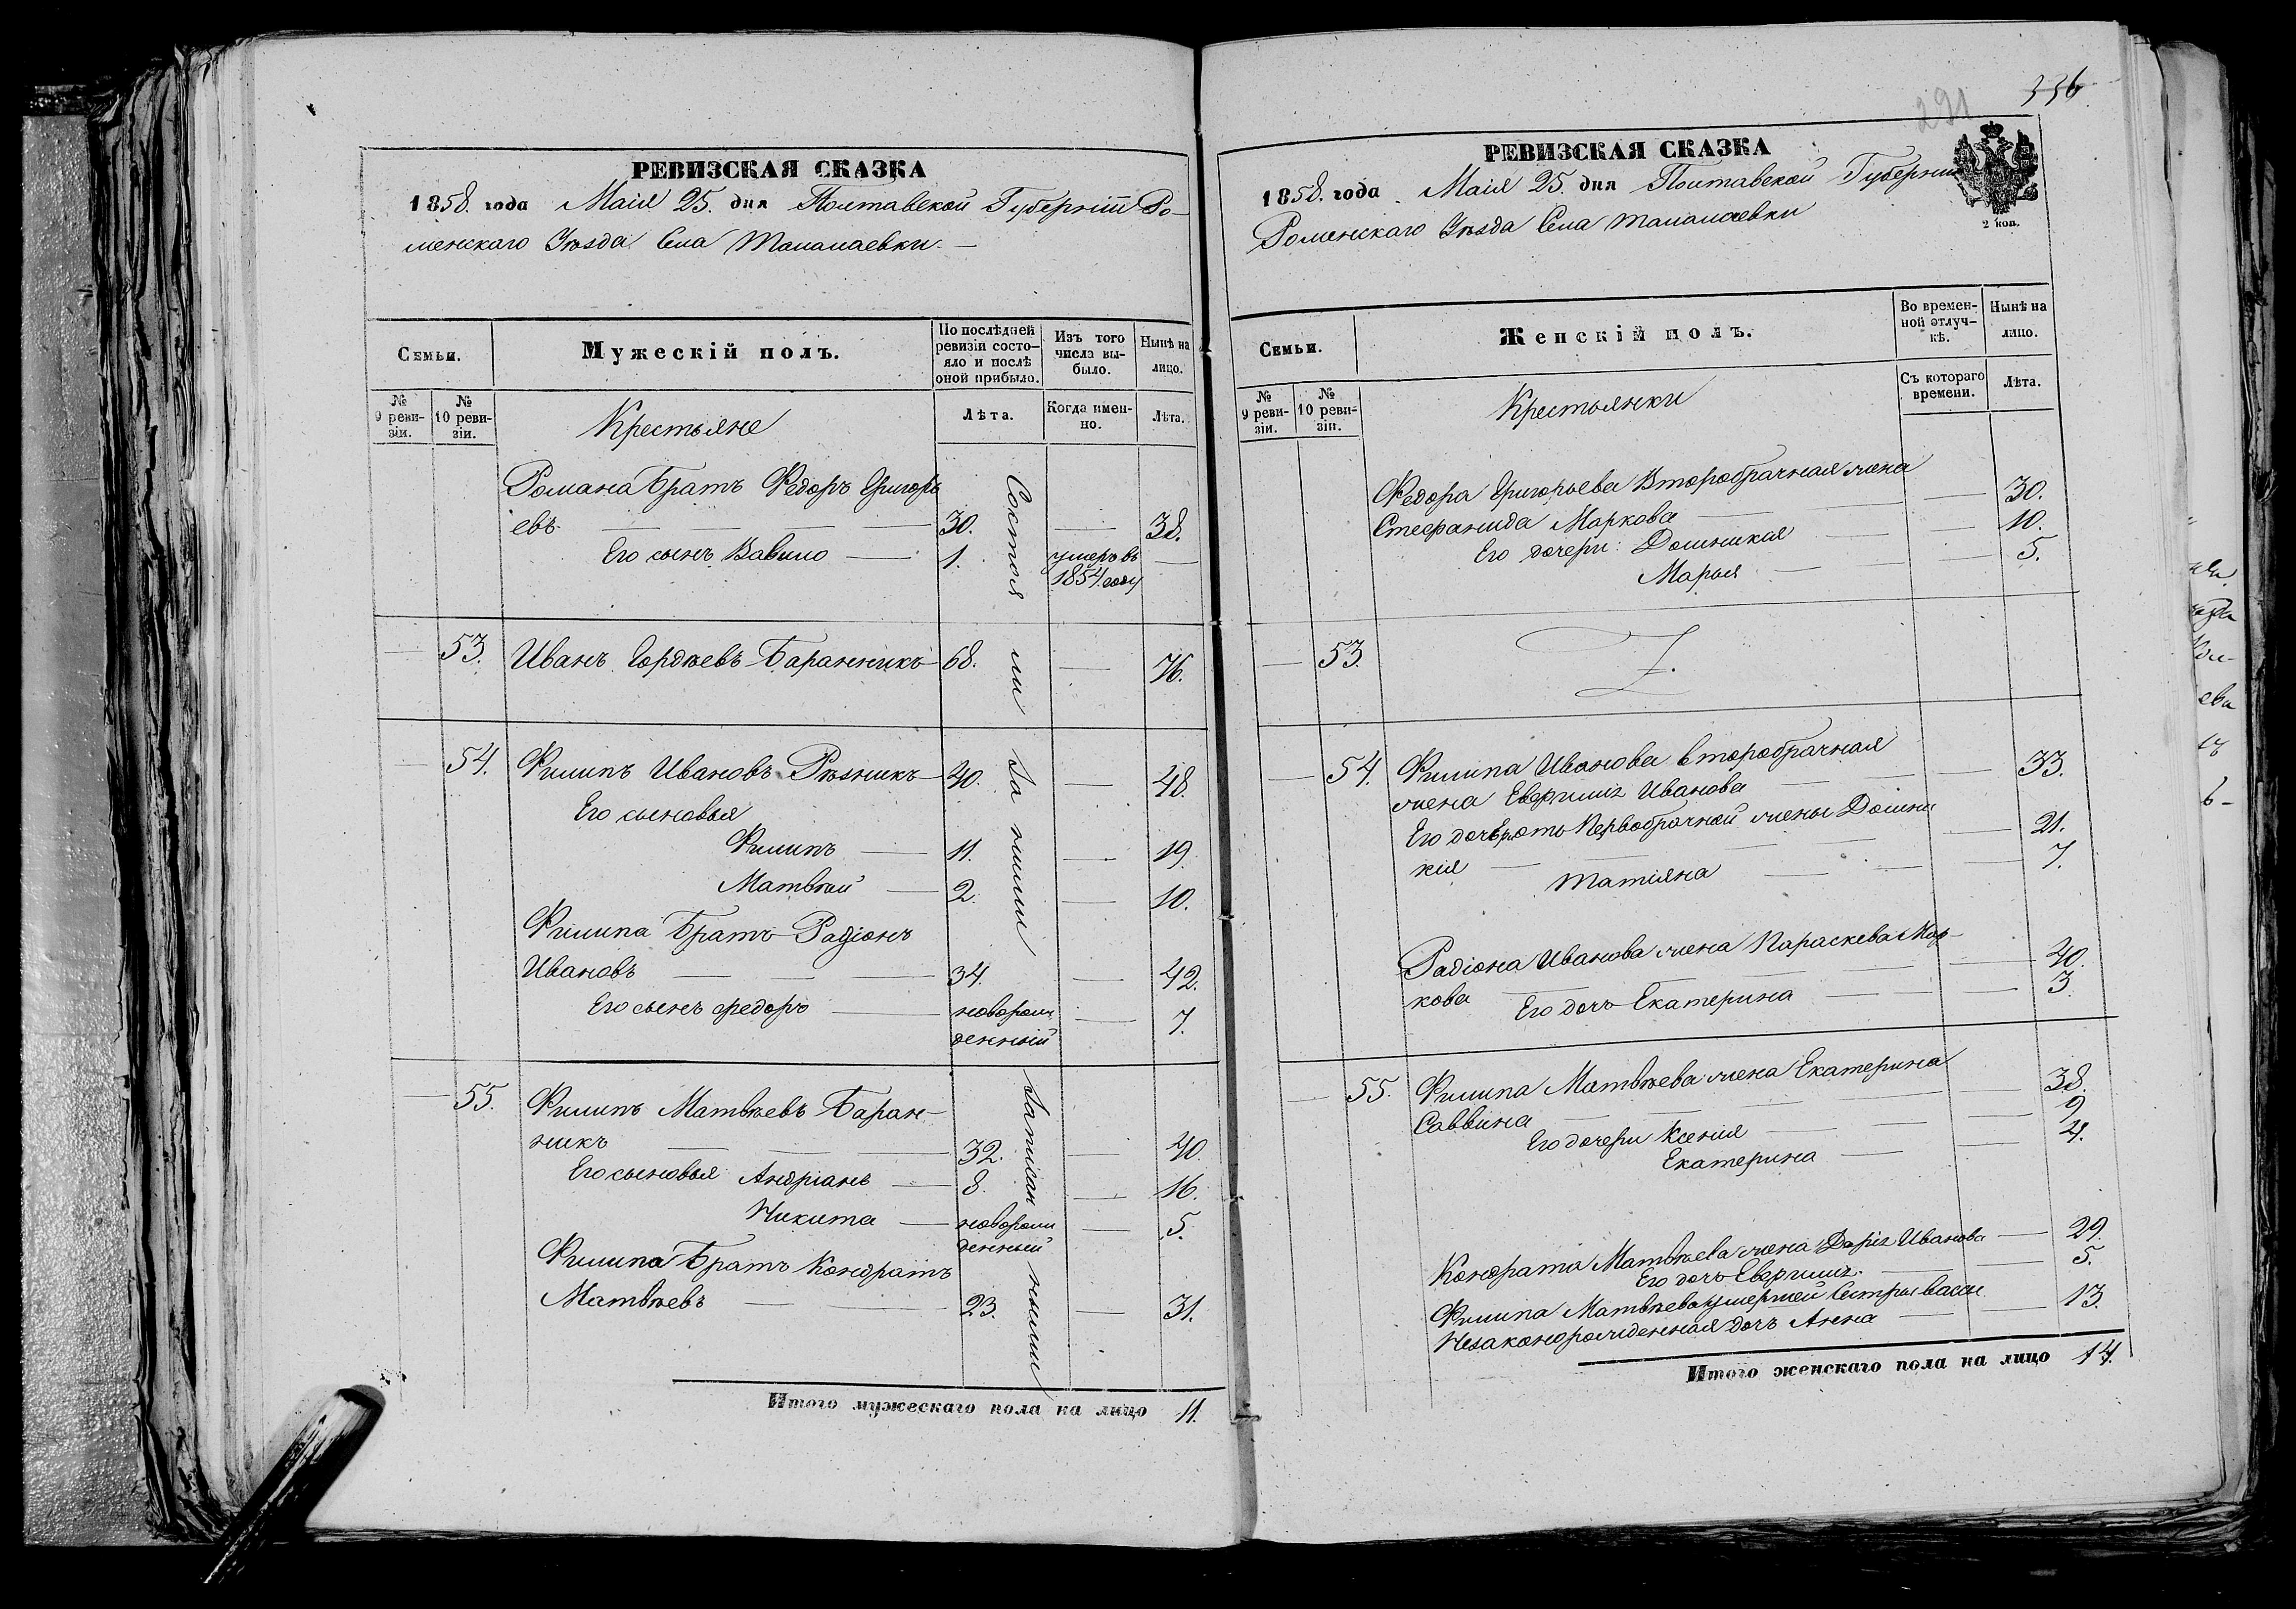 РЕВИЗСКАЯ СКАЗКА
1858. года Маія 25. дня Полтавской Губерніи Ро-
менскаго Уѣзда Села Талалаевки. —
Семьи.
Мужескій полъ.
По послѣдней
ревизіи состо-
яло и послѣ
оной прибыло.
Изъ того
числа вы-
было.
Нынѣ на
лицо.
№
9 реви-
зіи.
№
10 реви-
зіи.
Крестьяне
Лѣта.
Когда имен-
но.
Лѣта.
Романа Братъ Федоръ Григорь
евъ — 30. — 38.
Его сынъ Вавило — 1. умеръ въ —
1854 году
— 53. Иванъ Гордѣевъ Баранникъ 68. — 76.
— 54. Филипъ Ивановъ Рѣзникъ 40. — 48.
Его сыновья
Филипъ — 11. — 19.
Матвѣй — 2. — 10.
Филипа Братъ Радіонъ
Ивановъ — 34. — 42.
Его сынъ Федоръ — новорож — 7.
денный
— 55. Филипъ Матвѣевъ Баран-
никъ — 32. — 40.
Его сыновья Андріанъ — 8. — 16.
Никита — новорож — 5.
денный
Филипа Братъ Кондратъ
Матвѣевъ — 23. — 31.
Состоя ли за ними
записан ными
Итого мужескаго пола на лицо 11.
336
291
РЕВИЗСКАЯ СКАЗКА
1858. года Маія 25. дня Полтавской Губерніи
Роменскаго Уѣзда Села Талалаевки
2 коп.
Семьи.
Женскій полъ.
Во времен-
ной отлуч-
кѣ.
Нынѣ на
лицо.
№
9 реви-
зіи.
№
10 реви-
зіи.
Крестьянки
Съ котораго
времени.
Лѣта.
Федора Григорьева Второбрачная жена
Стефанида Маркова — 30.
Его дочери: Домникія — 10.
Марья — 5.
— 53.
— 54. Филипа Иванова второбрачная
жена Евфимія Иванова — 33.
Его дочь отъ Первобрачной жены Домни
кія — 21.
Татіяна — 7.
Радіона Иванова жена Параскева Мар-
кова — 40.
Его дочь Екатерина — 3.
— 55. Филипа Матвѣева жена Екатерина
Саввина — 38.
Его дочери Ксенія — 9.
Екатерина — 4.
Кондрата Матвѣева жена Дарія Иванова — 29.
Его дочь Евфимія — 5.
Филипа Матвѣева умершей Сестры Васси
Незаконорожденная дочь Анна — 13.
Итого женскаго пола на лицо 14.